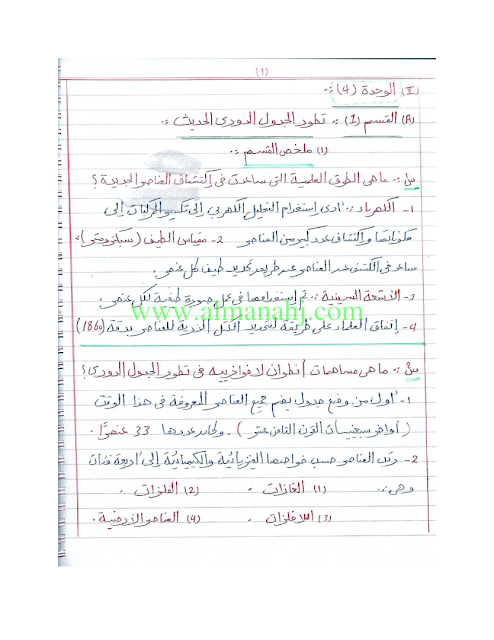 (1)
(II) الوحدة (4) :.
(A) القسم (I) :. تطور الجدول الدوري الحديث :.
(1) ملخص القسم :.
س1 :. ما هي الطرق العلمية التي ساعدت في إكتشاف العناصر الجديدة ؟
1- الكهرباء :. أدى إستخدام التحليل الكهربي إلى تكسير المركبات إلى
مكوناتها وإكتشاف عدد كبير من العناصر 2- مقياس الطيف (سبكترومتر) :.
ساعد في الكشف عن العناصر عن طريق تحديد طيف كل عنصر .
3- الأشعة السينية :. تم إستخدامها في عمل صورة طيفية لكل عنصر .
www.almanahj.com
4- إتفاق العلماء على طريقة لتحديد الكتل الذرية للعناصر بدقة (1860)
س2 :. ما هي مساهمات أنطوان لافوازييه في تطور الجدول الدوري ؟
1- أول من وضع جدول يضم جميع العناصر المعروفة في هذا الوقت
( أواخر سبعينيات القرن الثامن عشر ) . وكان عددها 33 عنصرًا .
2- رتب العناصر حسب خواصها الفيزيائية والكيميائية إلى أربعة فئات
وهي :. (1) الغازات . (2) الفلزات .
(3) اللافلزات . (4) العناصر الأرضية .